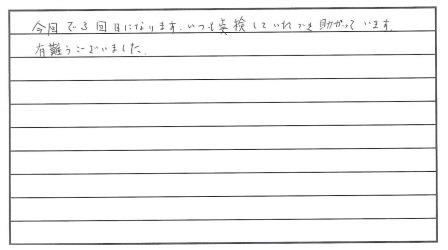 今回で3回目になります。いつも点検していただき助かっています。
有難うございました。